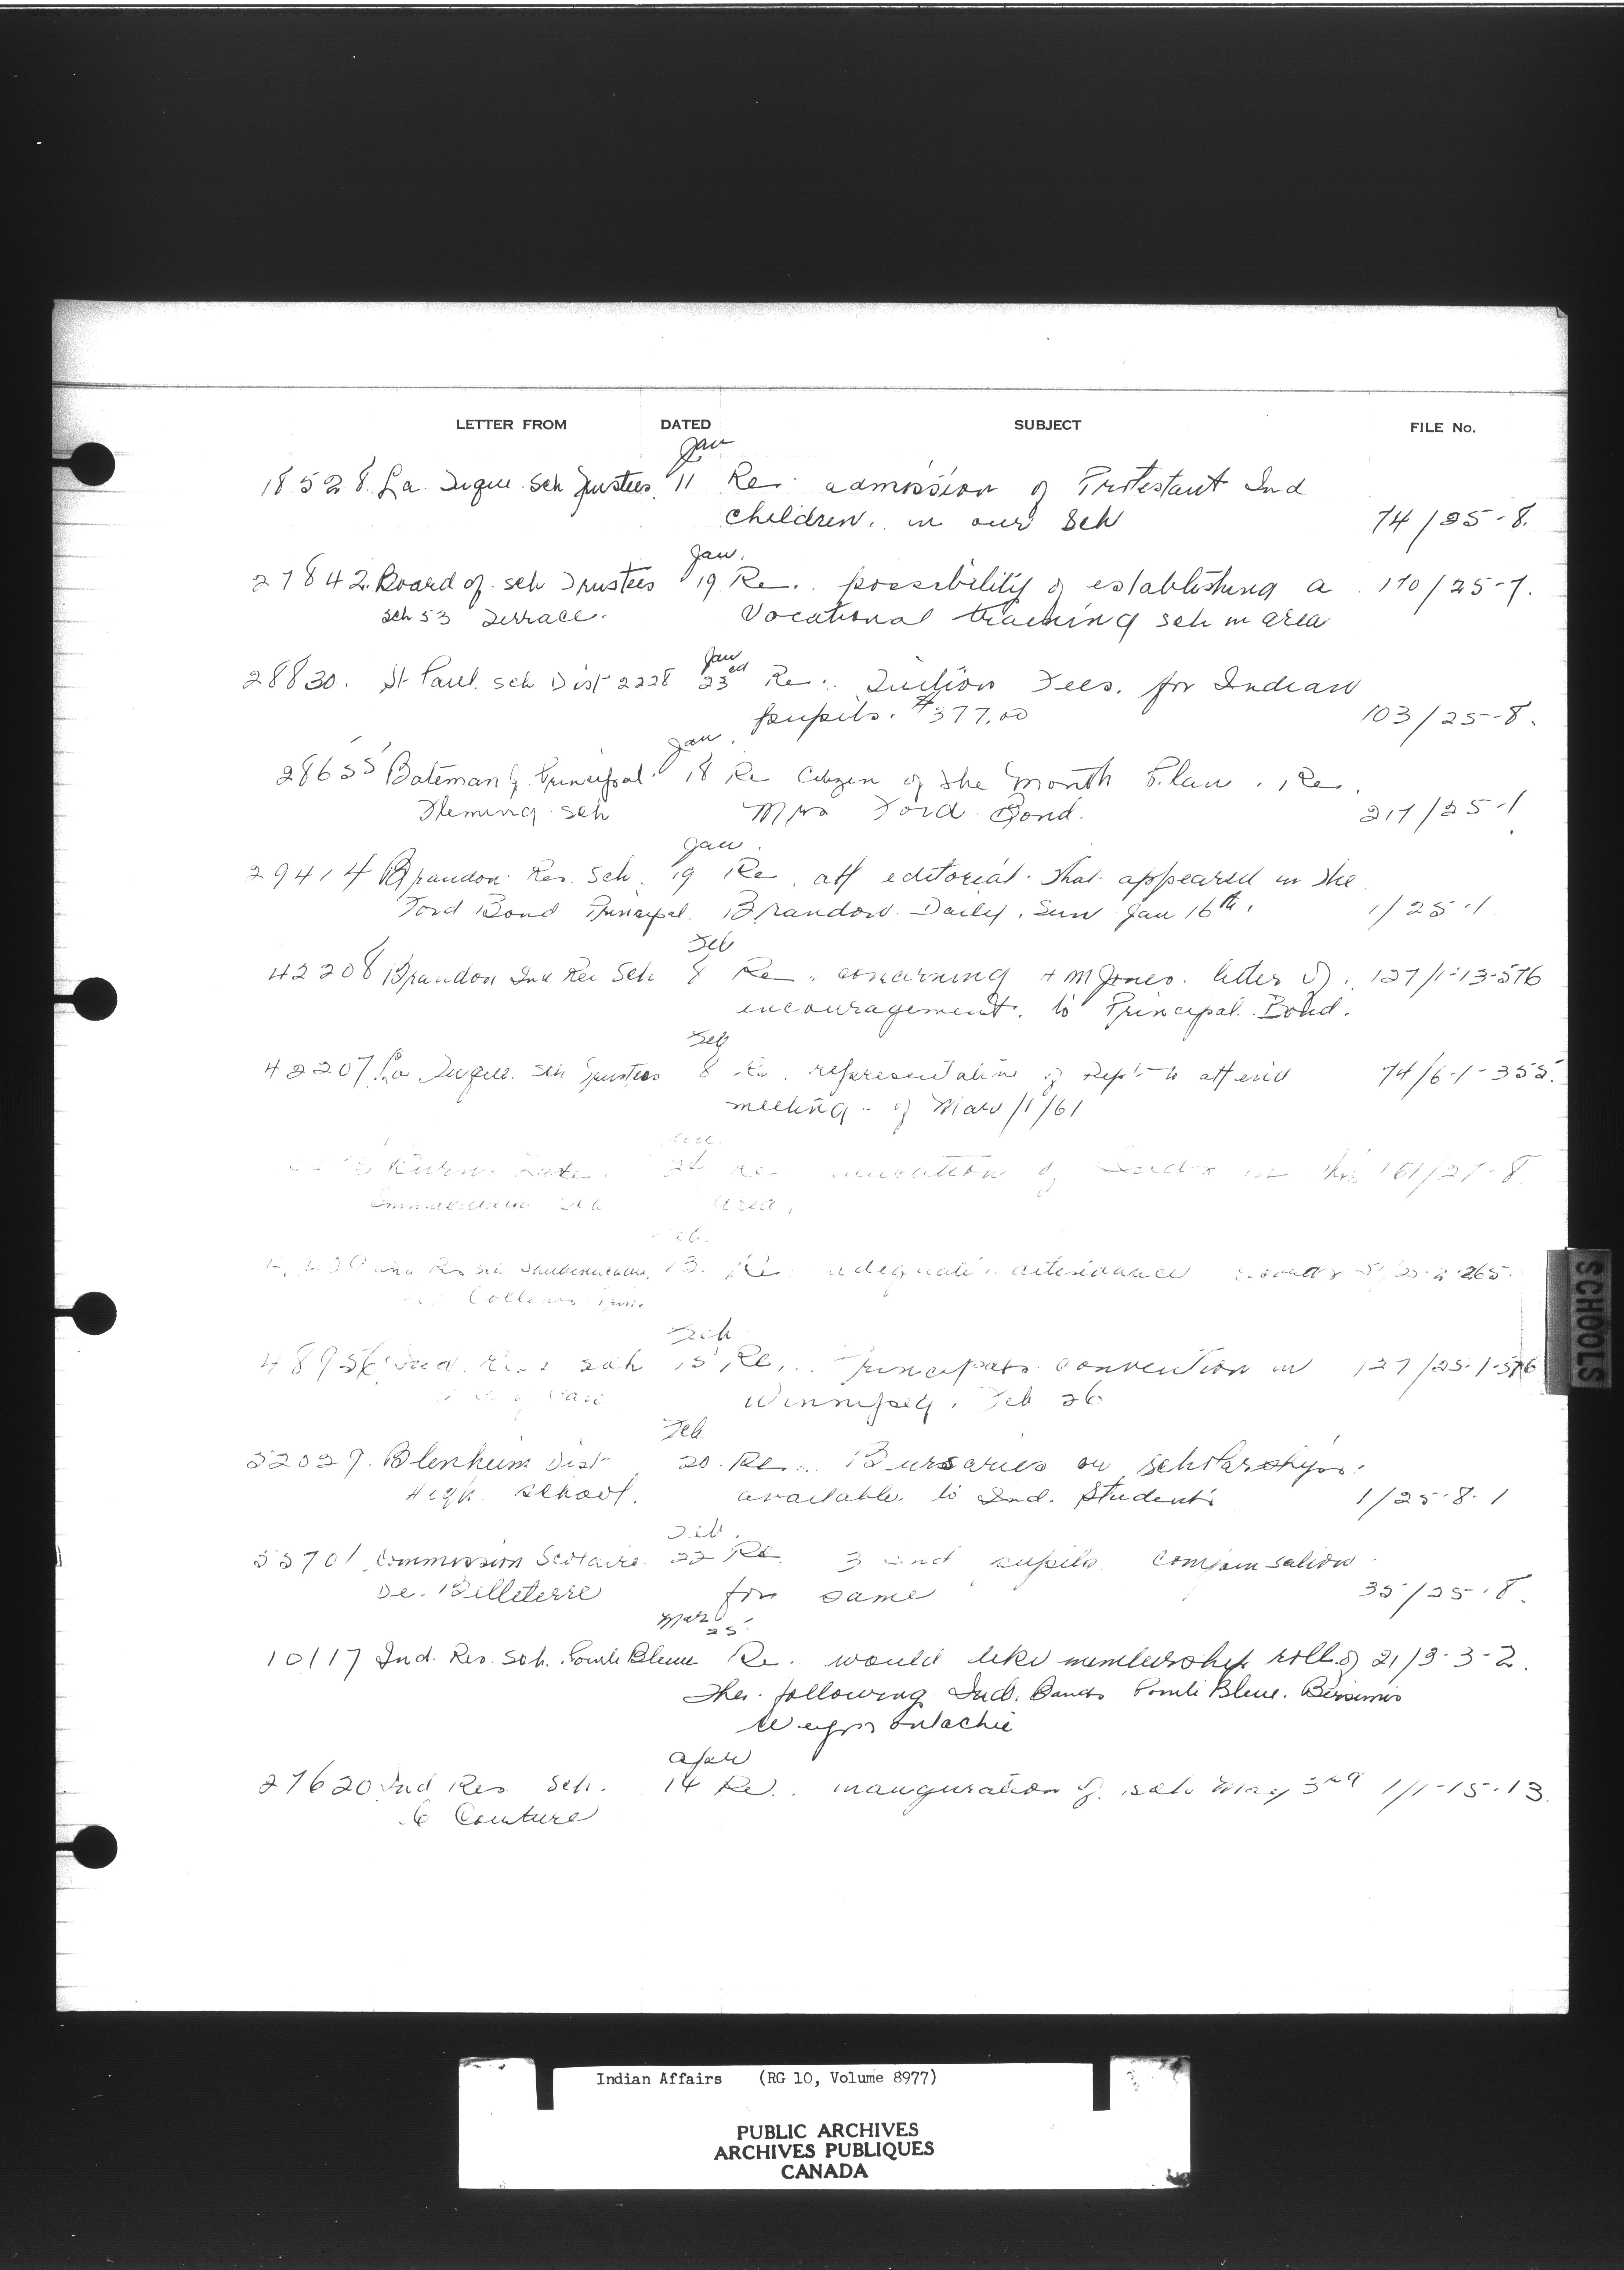 LETTER FROM DATED SUBJECT FILE No.
Jan
18528 La Tuque sch Trustees. 11 Re. admission of Protestant Ind
children. in our Sch 74/25-8.
Jan.
27842. Board of. sch Trustees 19 Re. possibility of establishing a 170/25-7.
sch 53 Terrace. Vocational training sch in area
Jan
28830. St Paul. sch Dist 2228 23ed Re. Tuition Fees. for Indian
pupils. $377.00 103/25-8.
Jan.
28655 Bateman G. Principal 18 Re Citizen of the Month Plan. Re.
Fleming sch Mrs Ford Bond. 217/25-1
Jan.
29414 Brandon Res. Sch. 19 Re. att editorial. That. appeared in the
Ford Bond Principal. Brandon. Daily. Sun Jan 16th. 1/25-1
Feb
42208 Brandon Ind Res Sch 8 Re. concerning H M Jones. letter of. 127/1-13-576
encouragement. to Principal. Bond.
Feb
42207 La Tuque. sch Trustees 8 Re. representative of Dept to attend 74/6-1-355.
meeting of Mar/1/61
Burns Lake 24 Re of in 161/27-8.
sch area.
Res sch Shubenacadie, 13. Re. adequate attendance
Collins
Feb
48956 Ind. Res sch 15 Re. Principals convention in 127/25-1-576
Winnipeg. Feb 26
Feb.
52029. Blenheim Dist 20. Re. Bursaries or scholarships.
High. school. available. to Ind. Students 1/25-8-1
Feb.
55701 Commission Scolaire 22 Re 3 ind pupils compensation
De. Belleterre for same 35/25-8.
Mar
25
10117 Ind. Res. Sch. Pointe Bleue Re. would like membership roll of 21/3-3-2.
The. following Ind. Bands Pointe Bleue. Bersimis
Weymontachie
Apr
27620 Ind Res Sch. 14 Re. inauguration of. sch May 3rd 1/1-15-13.
Couture
SCHOOLS
Indian Affairs (RG 10, Volume 8977)
PUBLIC ARCHIVES
ARCHIVES PUBLIQUES
CANADA